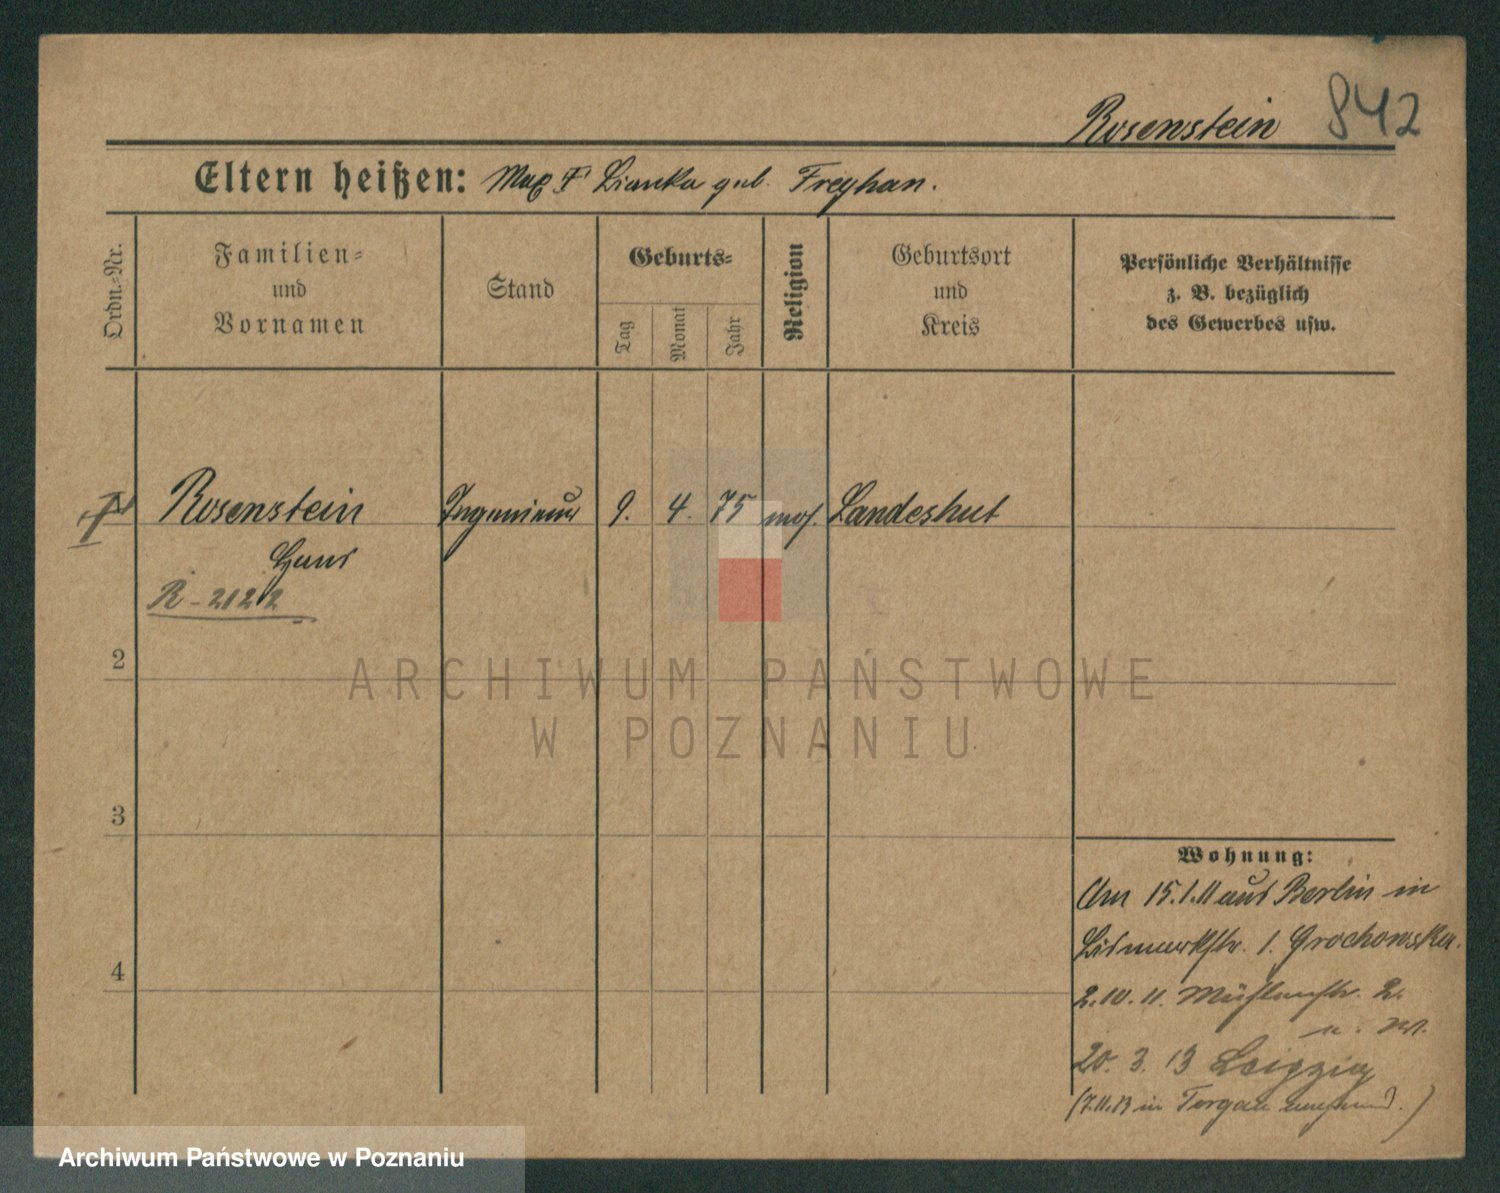 Rosenstein 842
Eltern heißen: Max & Bianka geb. Freyhan.
Ordn.=Nr.
Familien=
und
Vornamen
Stand
Geburts=
Tag
Monat
Jahr
Religion
Geburtsort
und
Kreis
Persönliche Verhältnisse
z. B. bezüglich
des Gewerbes usw.
Rosenstein Ingenieur 9. 4. 75 mos. Landeshut
Hans
R-2122
2
3
4
Wohnung:
Am 15.1.11 aus Berlin in
Bismarkstr. 1. Grochowska.
2.10.11. Mühlenstr. 2.
20.3.13 Leipzig
(7.11.13 in Torgau)
ARCHIWUM PAŃSTWOWE
W POZNANIU
Archiwum Państwowe w Poznaniu